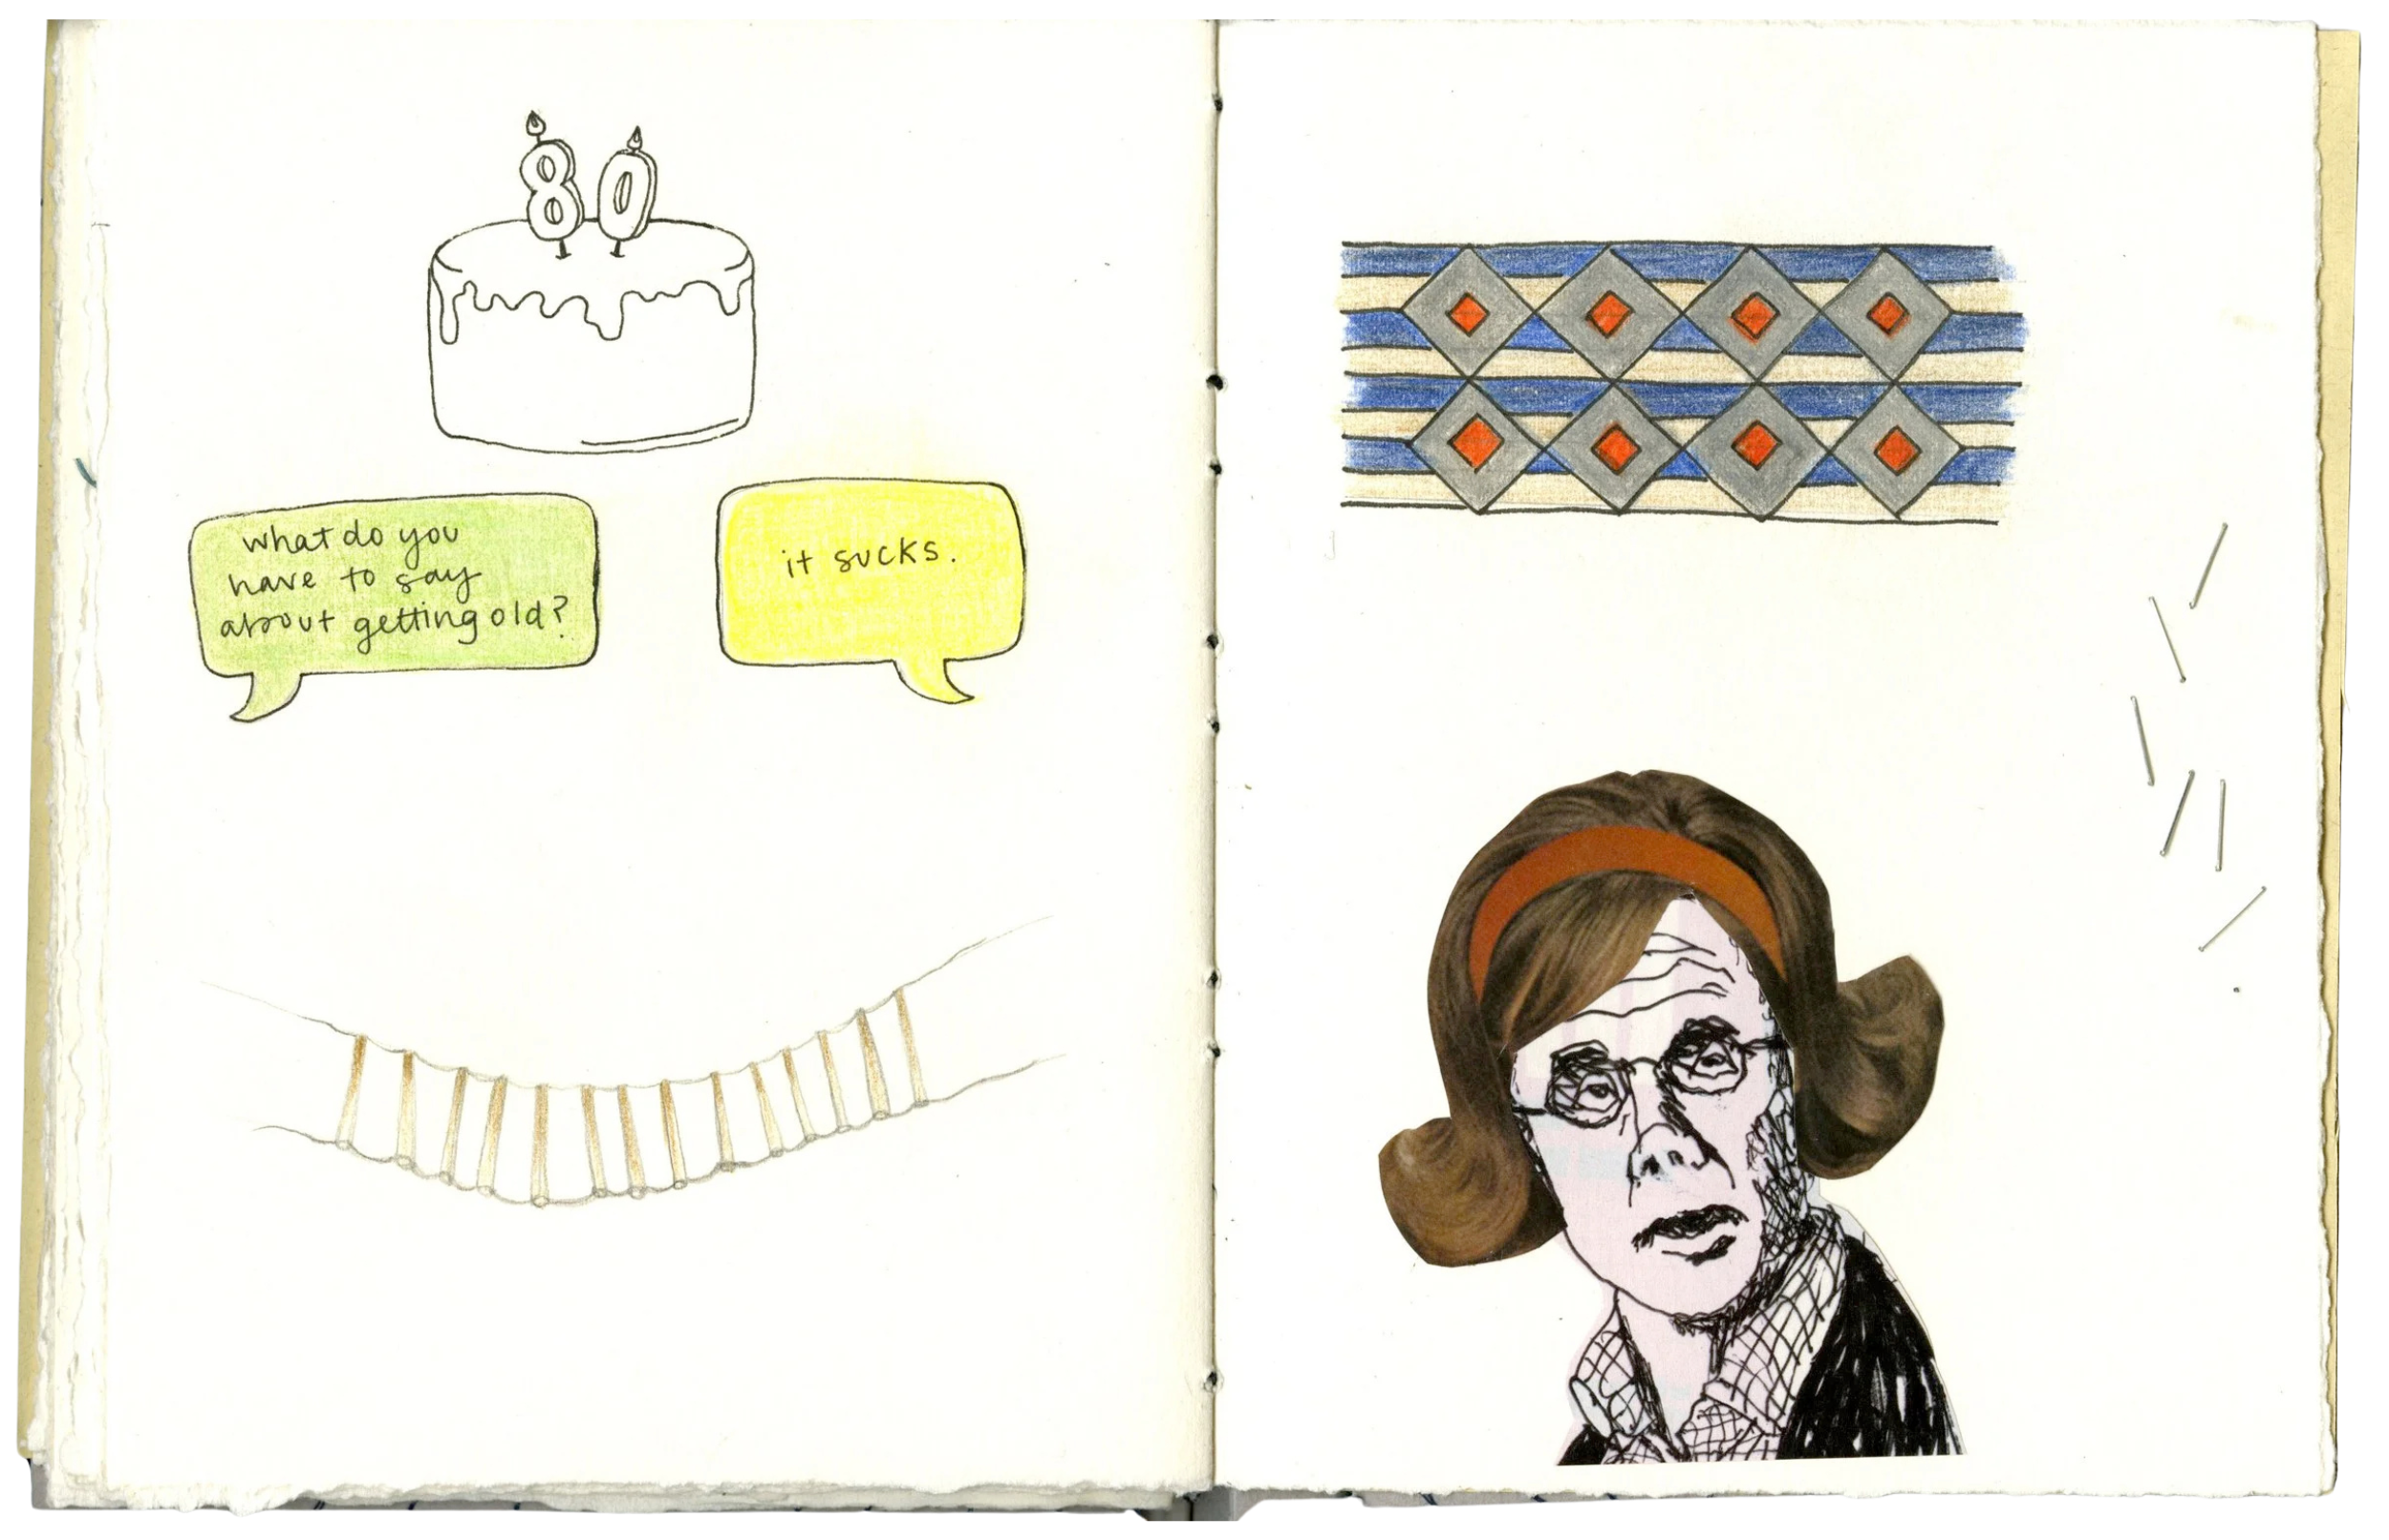 80
what do you
have to say
about getting old?
it sucks.